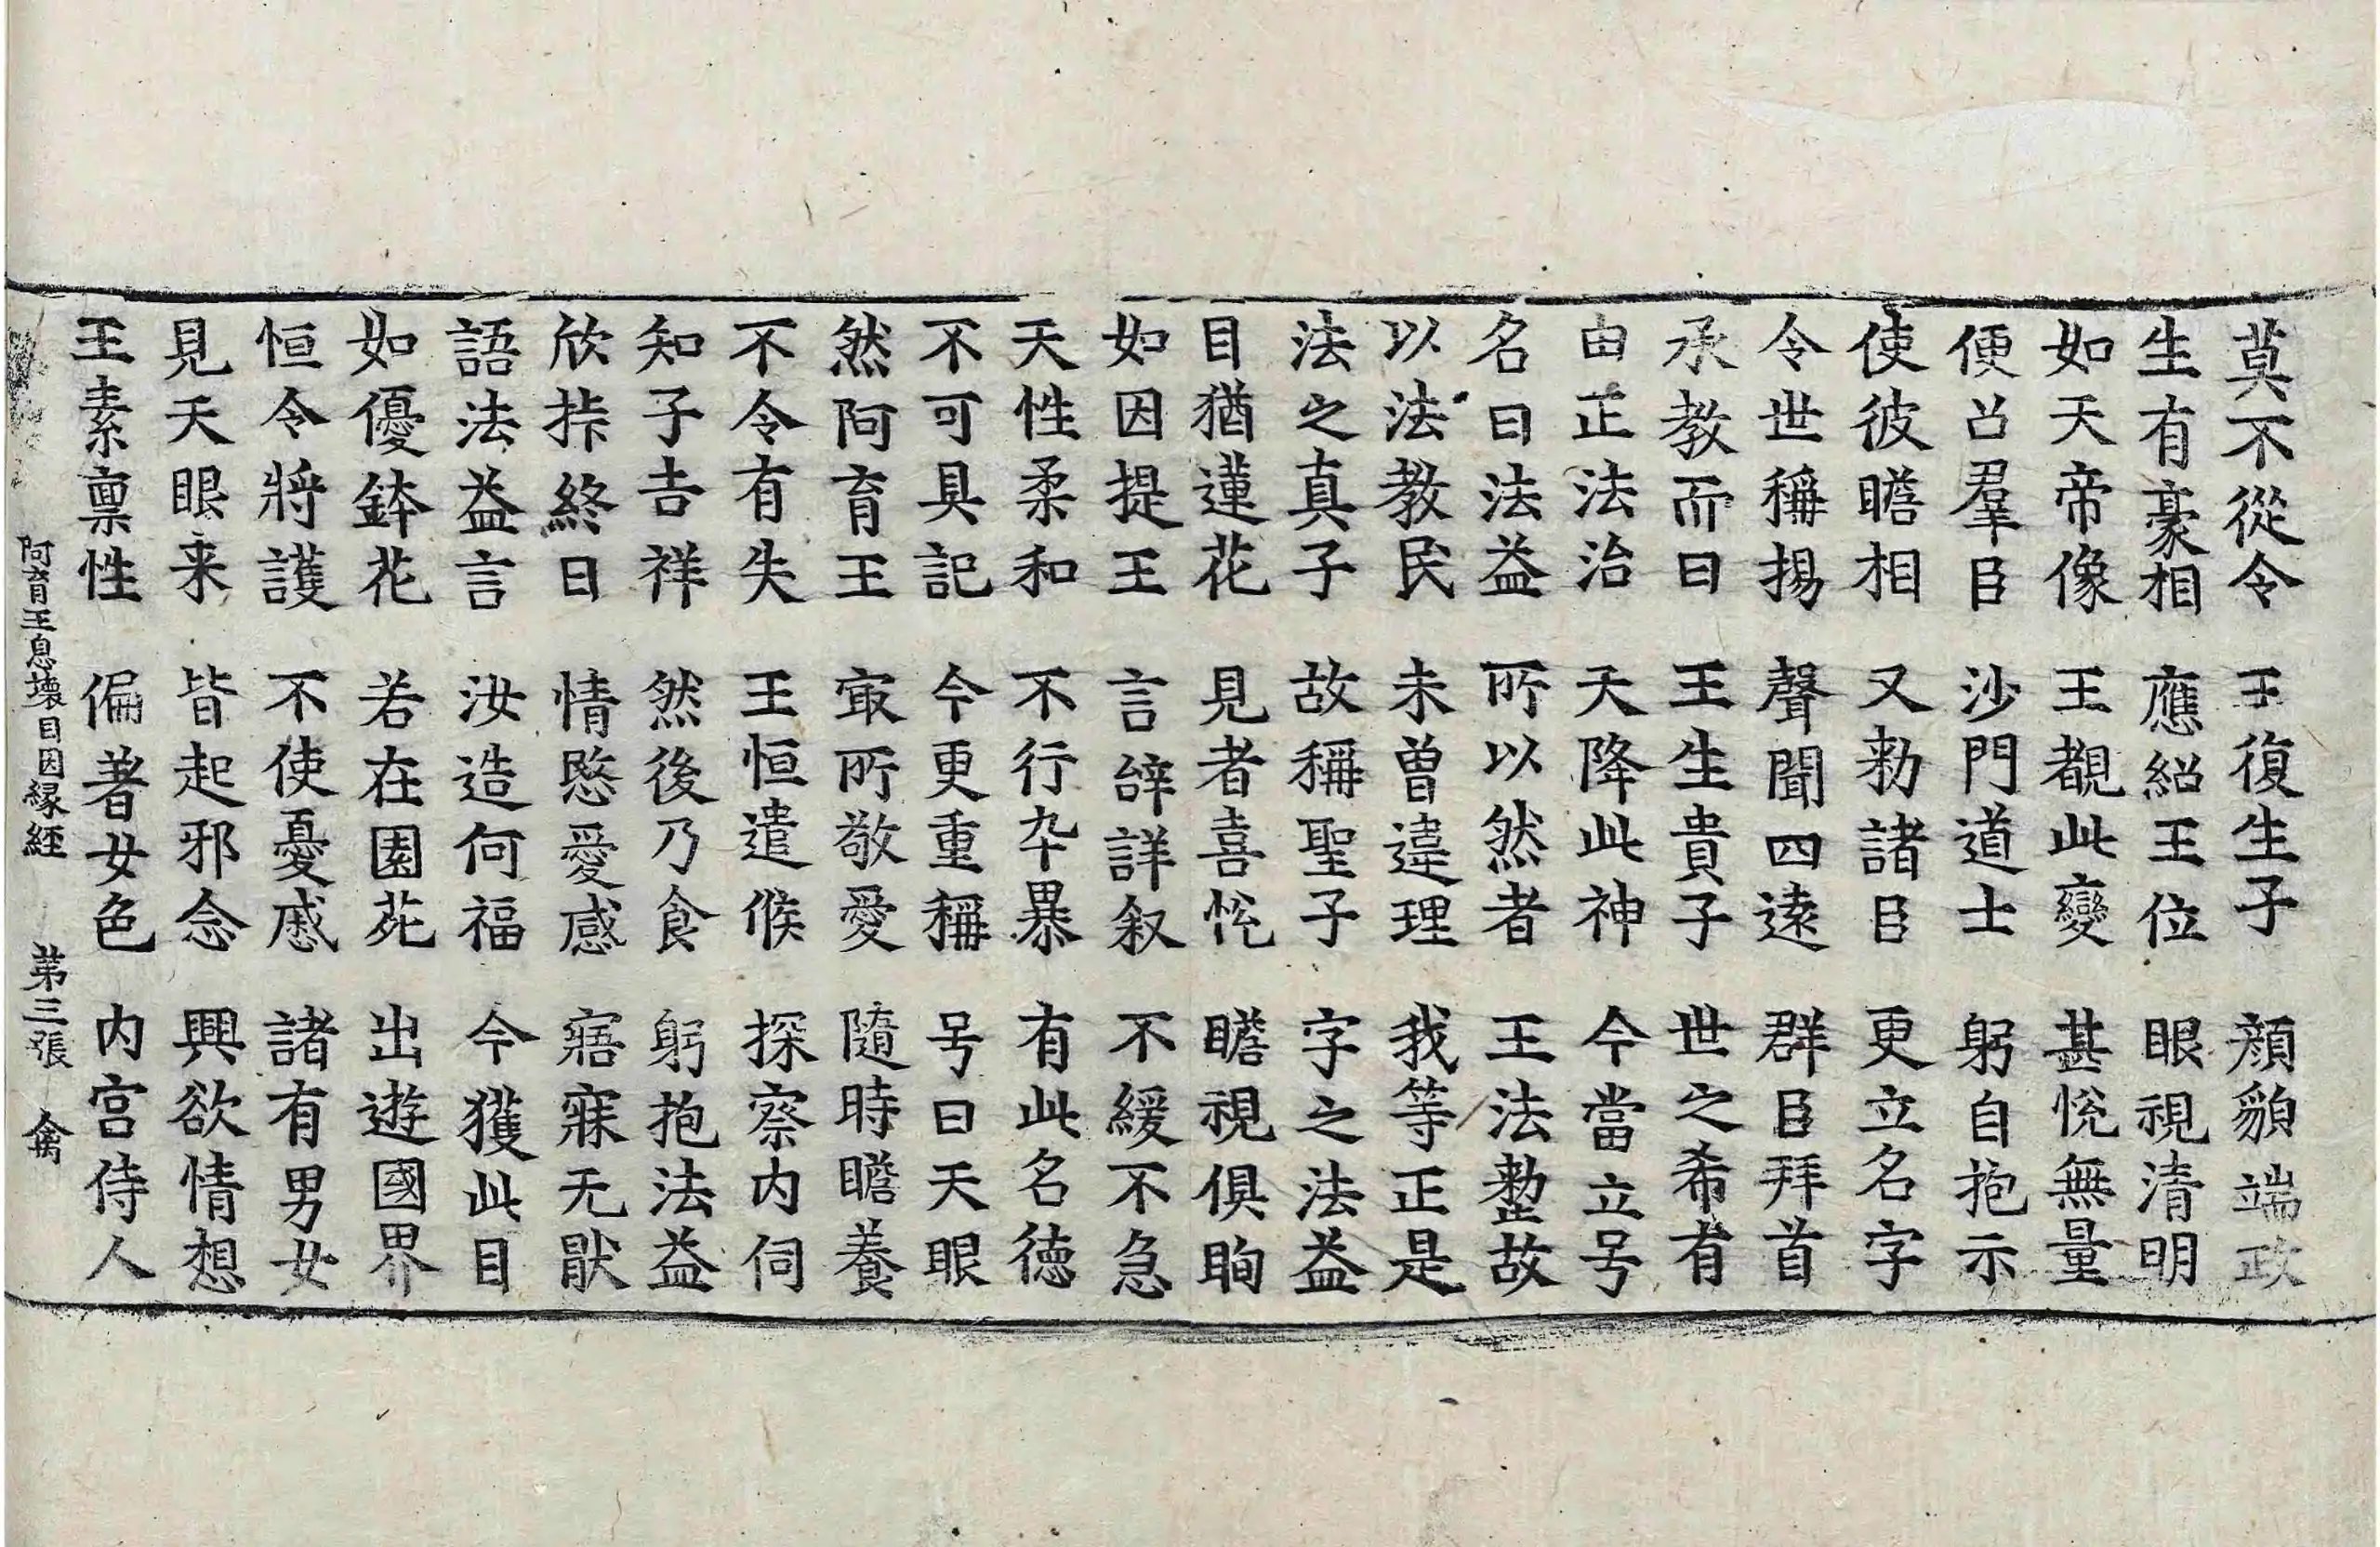 莫不從令　王復生子　顏貌端政
生有豪相　應紹王位　眼視清明
如天帝像　王覩此變　甚悅無量
便召羣臣　沙門道士　躬自抱示
使彼瞻相　又勑諸臣　更立名字
令世稱揚　聲聞四遠　群臣拜首
承教而曰　王生貴子　世之希有
由正法治　天降此神　今當立号
名曰法益　所以然者　王法整故
以法教民　未曾違理　我等正是
法之真子　故稱聖子　字之法益
目猶蓮花　見者喜悅　瞻視俱眴
如因提王　言辝詳叙　不緩不急
天性柔和　不行卒暴　有此名德
不可具記　今更重稱　号曰天眼
然阿育王　㝡所敬愛　隨時瞻養
不令有失　王恒遣候　探察內伺
知子吉祥　然後乃食　躬抱法益
欣𢫾終日　情愍愛感　寤寐无猒
語法益言　汝造何福　今獲此目
如優鉢花　若在園苑　出遊國界
恒令將護　不使憂慼　諸有男女
見天眼来　皆起邪念　興欲情想
王素稟性　偏著女色　內宮侍人
阿育王息壞目因緣經　第三張　禽